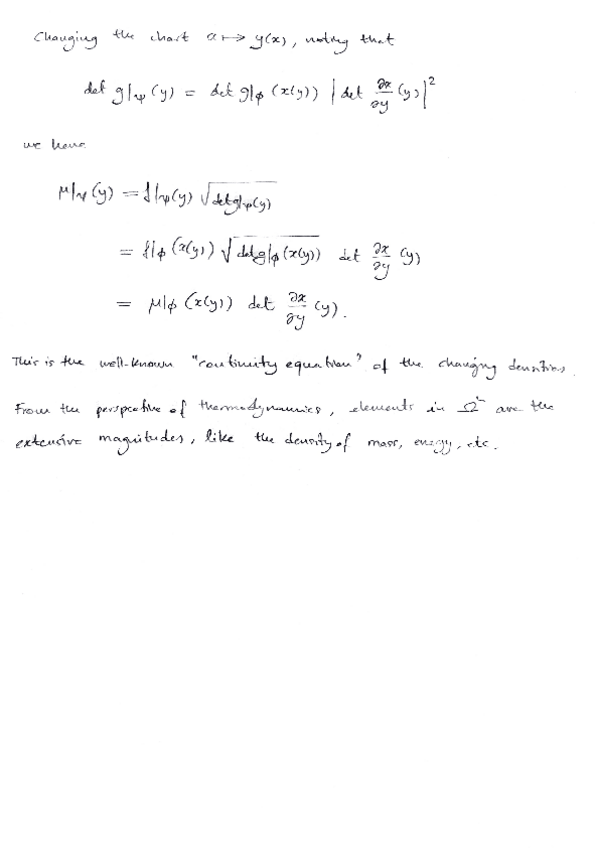 Changing the chart x ↦ y(x), noting that
det g|ψ (y) = det g|ϕ (x(y)) | det ∂x/∂y (y) |²
we have
μ|ψ (y) = f|ψ (y) √(det g|ψ (y))
= f|ϕ (x(y)) √(det g|ϕ (x(y))) det ∂x/∂y (y)
= μ|ϕ (x(y)) det ∂x/∂y (y).
This is the well-known "continuity equation" of the changing densities.
From the perspective of thermodynamics, elements in Ω are the
extensive magnitudes, like the density of mass, energy, etc.